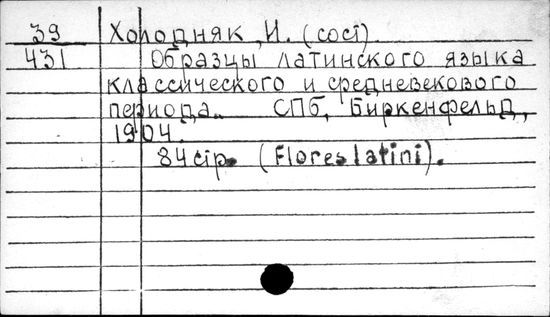 39 Холодняк, И. (сост)
431 Образцы латинского языка
классического и средневекового
периода. СПб, Биркенфельд,
1904.
84стр. (Flores latini).